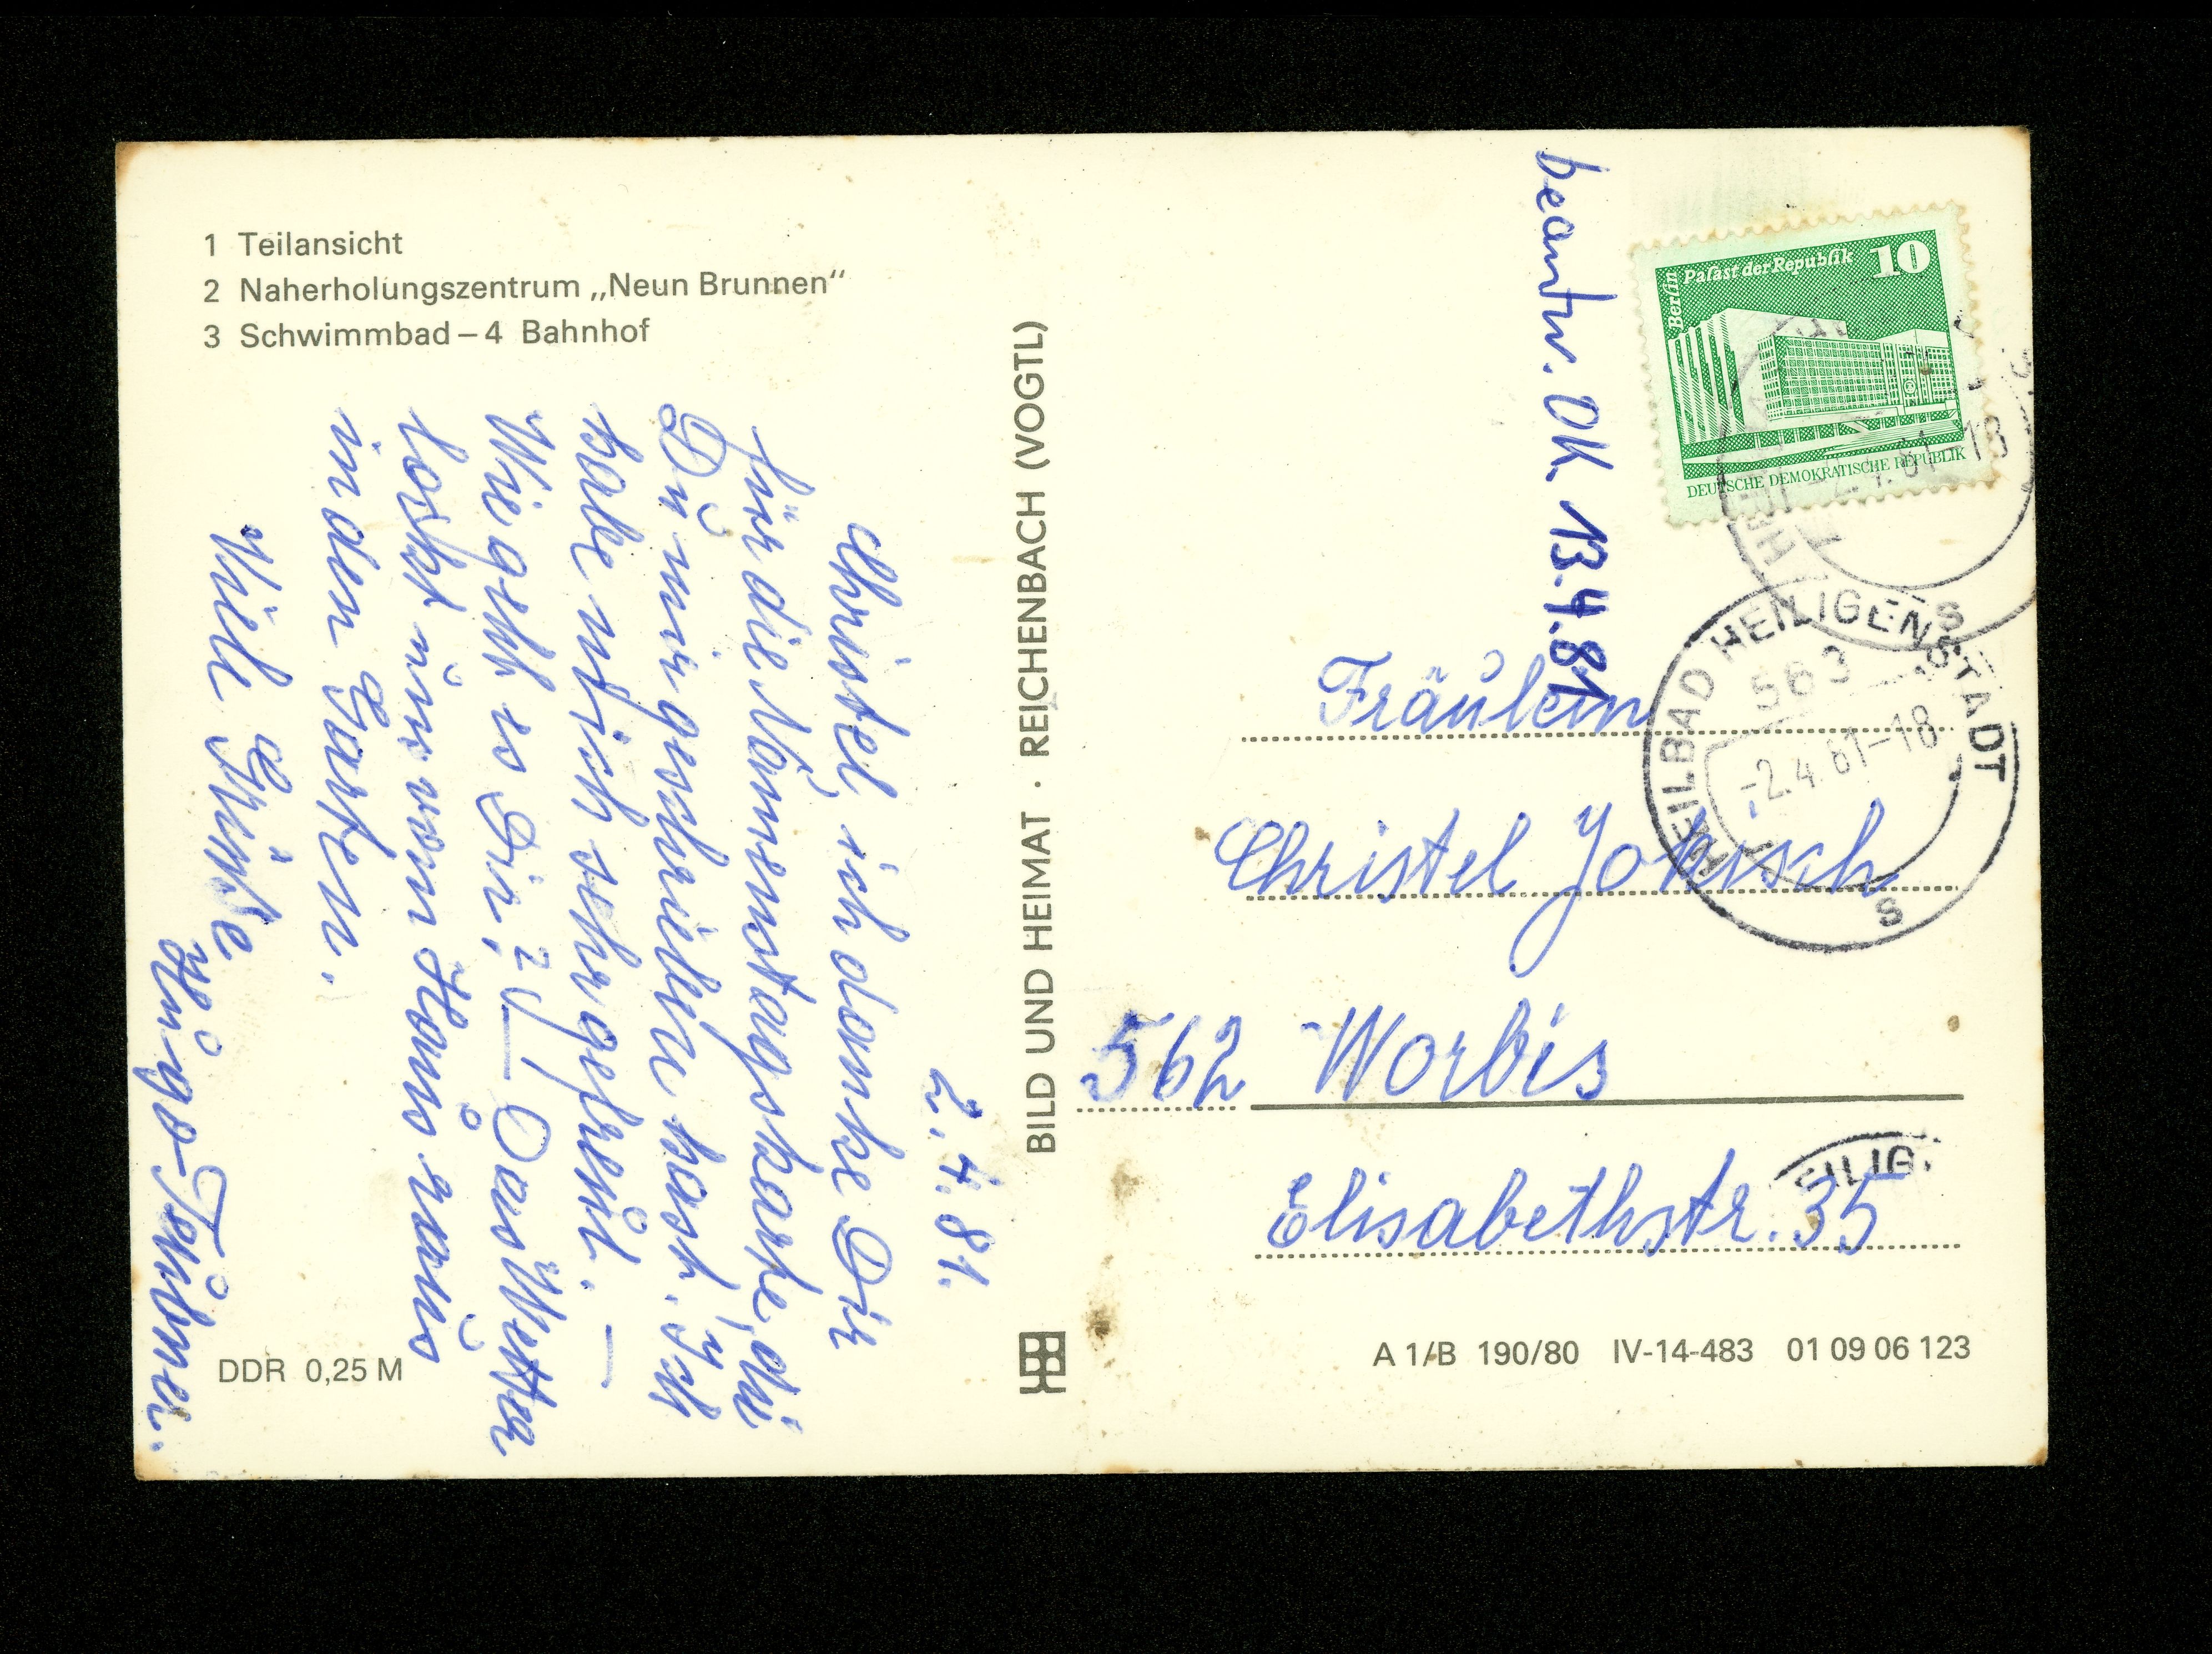 1 Teilansicht
2 Naherholungszentrum „Neun Brunnen“
3 Schwimmbad – 4 Bahnhof
2.4.81.
Christel, ich danke Dir
für die Namenstagskarte, die
Du mir geschrieben hast. Ich
habe mich sehr gefreut. —
Wie geht es Dir, Das Wetter
lockt uns vom Haus raus
in den Garten.
Viele Grüße
Hugo
DDR 0,25 M
BILD UND HEIMAT · REICHENBACH (VOGTL)
beantw. OK 13.4.81
Berlin
Palast der Republik 10
DEUTSCHE DEMOKRATISCHE REPUBLIK
HEILBAD HEILIGENSTADT
563
-2.4.81-18
S
Fräulein
Christel Jokisch
562 Worbis
EILIG
Elisabethstr. 35
A 1/B 190/80 IV-14-483 01 09 06 123